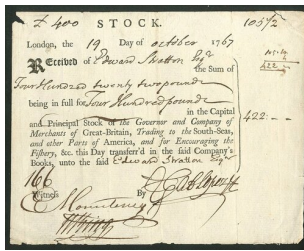 £ 400 STOCK. 105½
London, the 19 Day of october 1767
Received of Edward Stratton Esqr
the Sum of
Four Hundred twenty two pounds
being in full for Four Hundred pounds
in the Capital 422
and Principal Stock of the Governor and Company of
Merchants of Great-Britain, Trading to the South-Seas,
and other Parts of America, and for Encouraging the
Fishery, &c. this Day transferr'd in the said Company's
Books, unto the said Edward Stratton Esqr
166
Witness By